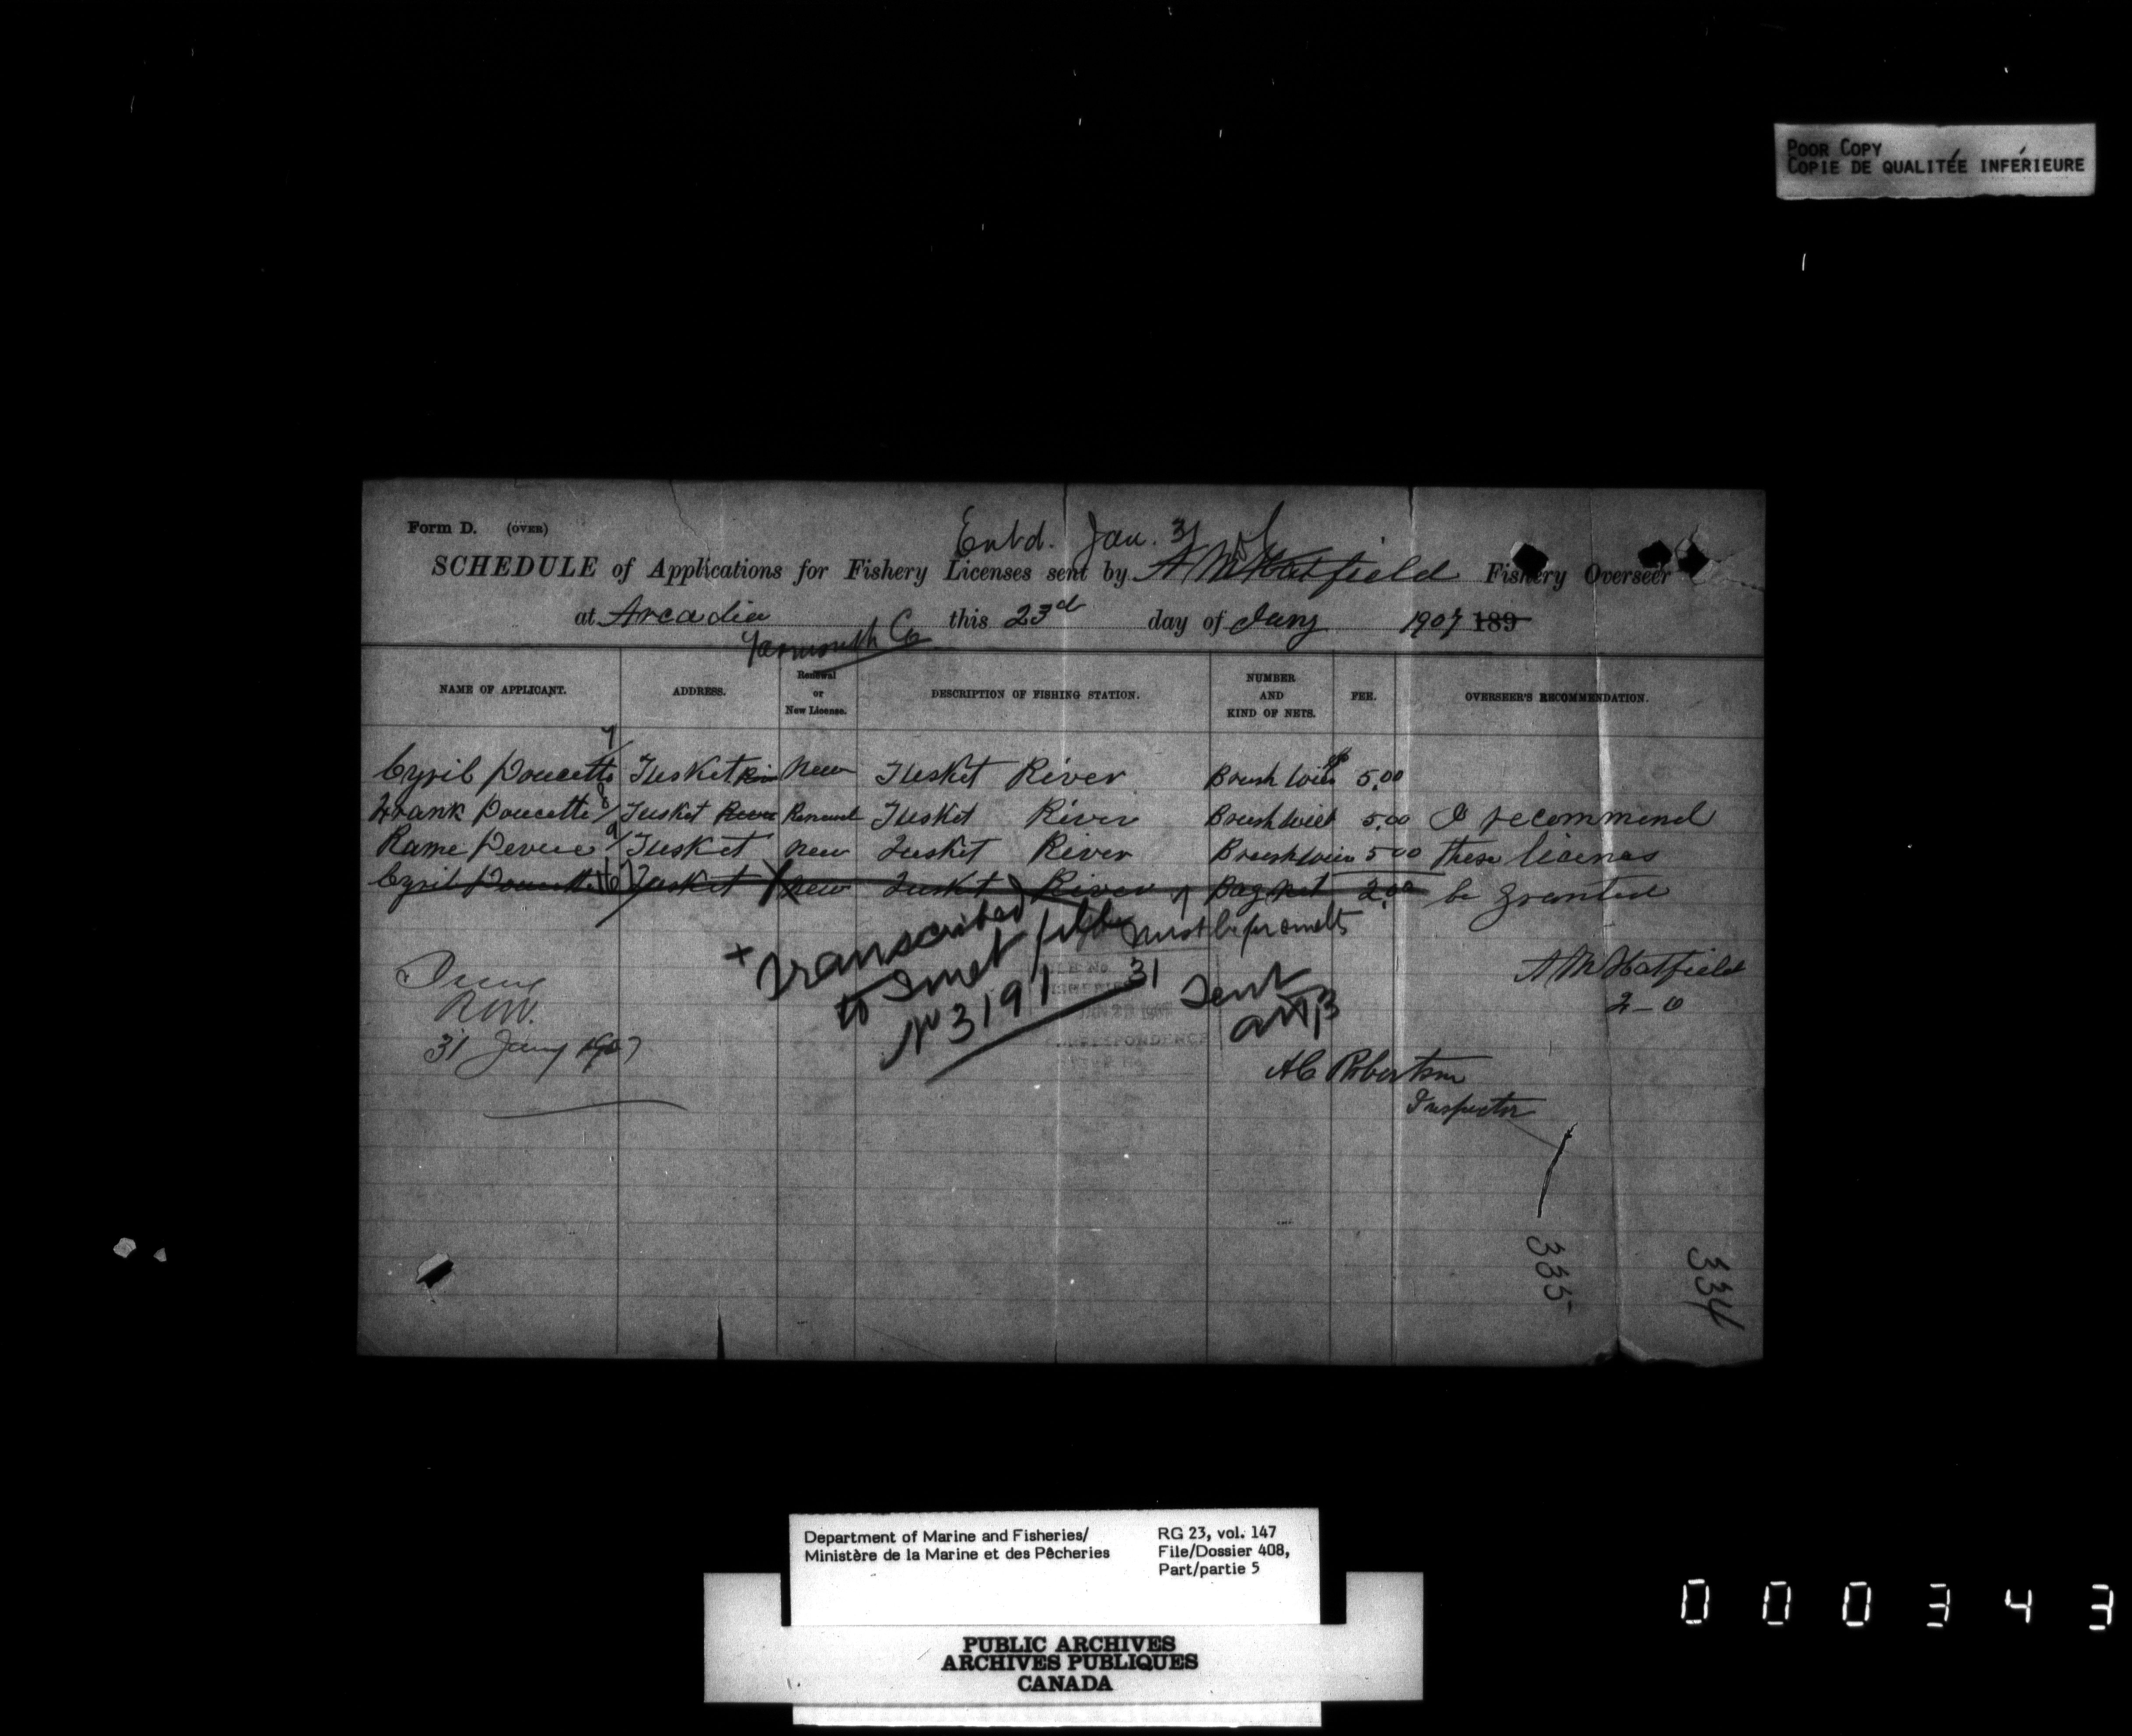 POOR COPY
COPIE DE QUALITÉE INFÉRIEURE
Form D. (OVER)
Entd. Jan. 31
SCHEDULE of Applications for Fishery Licenses sent by A M Hatfield Fishery Overseer
at Arcadia this 23d day of Jany 1907 189
Yarmouth Co
NAME OF APPLICANT. ADDRESS. Renewal or New License. DESCRIPTION OF FISHING STATION. NUMBER AND KIND OF NETS. FEE. OVERSEER'S RECOMMENDATION.
7
Cyril Doucette Tusket River New Tusket River Brush Weir 5.00
Frank Doucette 8 Tusket River Renewal Tusket River Brush Weir 5.00 I recommend
Rame Deveue 9 Tusket New Tusket River Brush Weir 5.00 these licenses
Cyril Doucette 10 Tusket New Tusket River Bag Net 2.00 be granted
+ Transcribed must be for smelts
to Smelt file
No 3191
31 Sent
A M Hatfield
2-0
R.W.
31 Jany 1907
A C Robertson
Inspector
335
334
Department of Marine and Fisheries/
Ministère de la Marine et des Pêcheries
RG 23, vol. 147
File/Dossier 408,
Part/partie 5
PUBLIC ARCHIVES
ARCHIVES PUBLIQUES
CANADA
000343